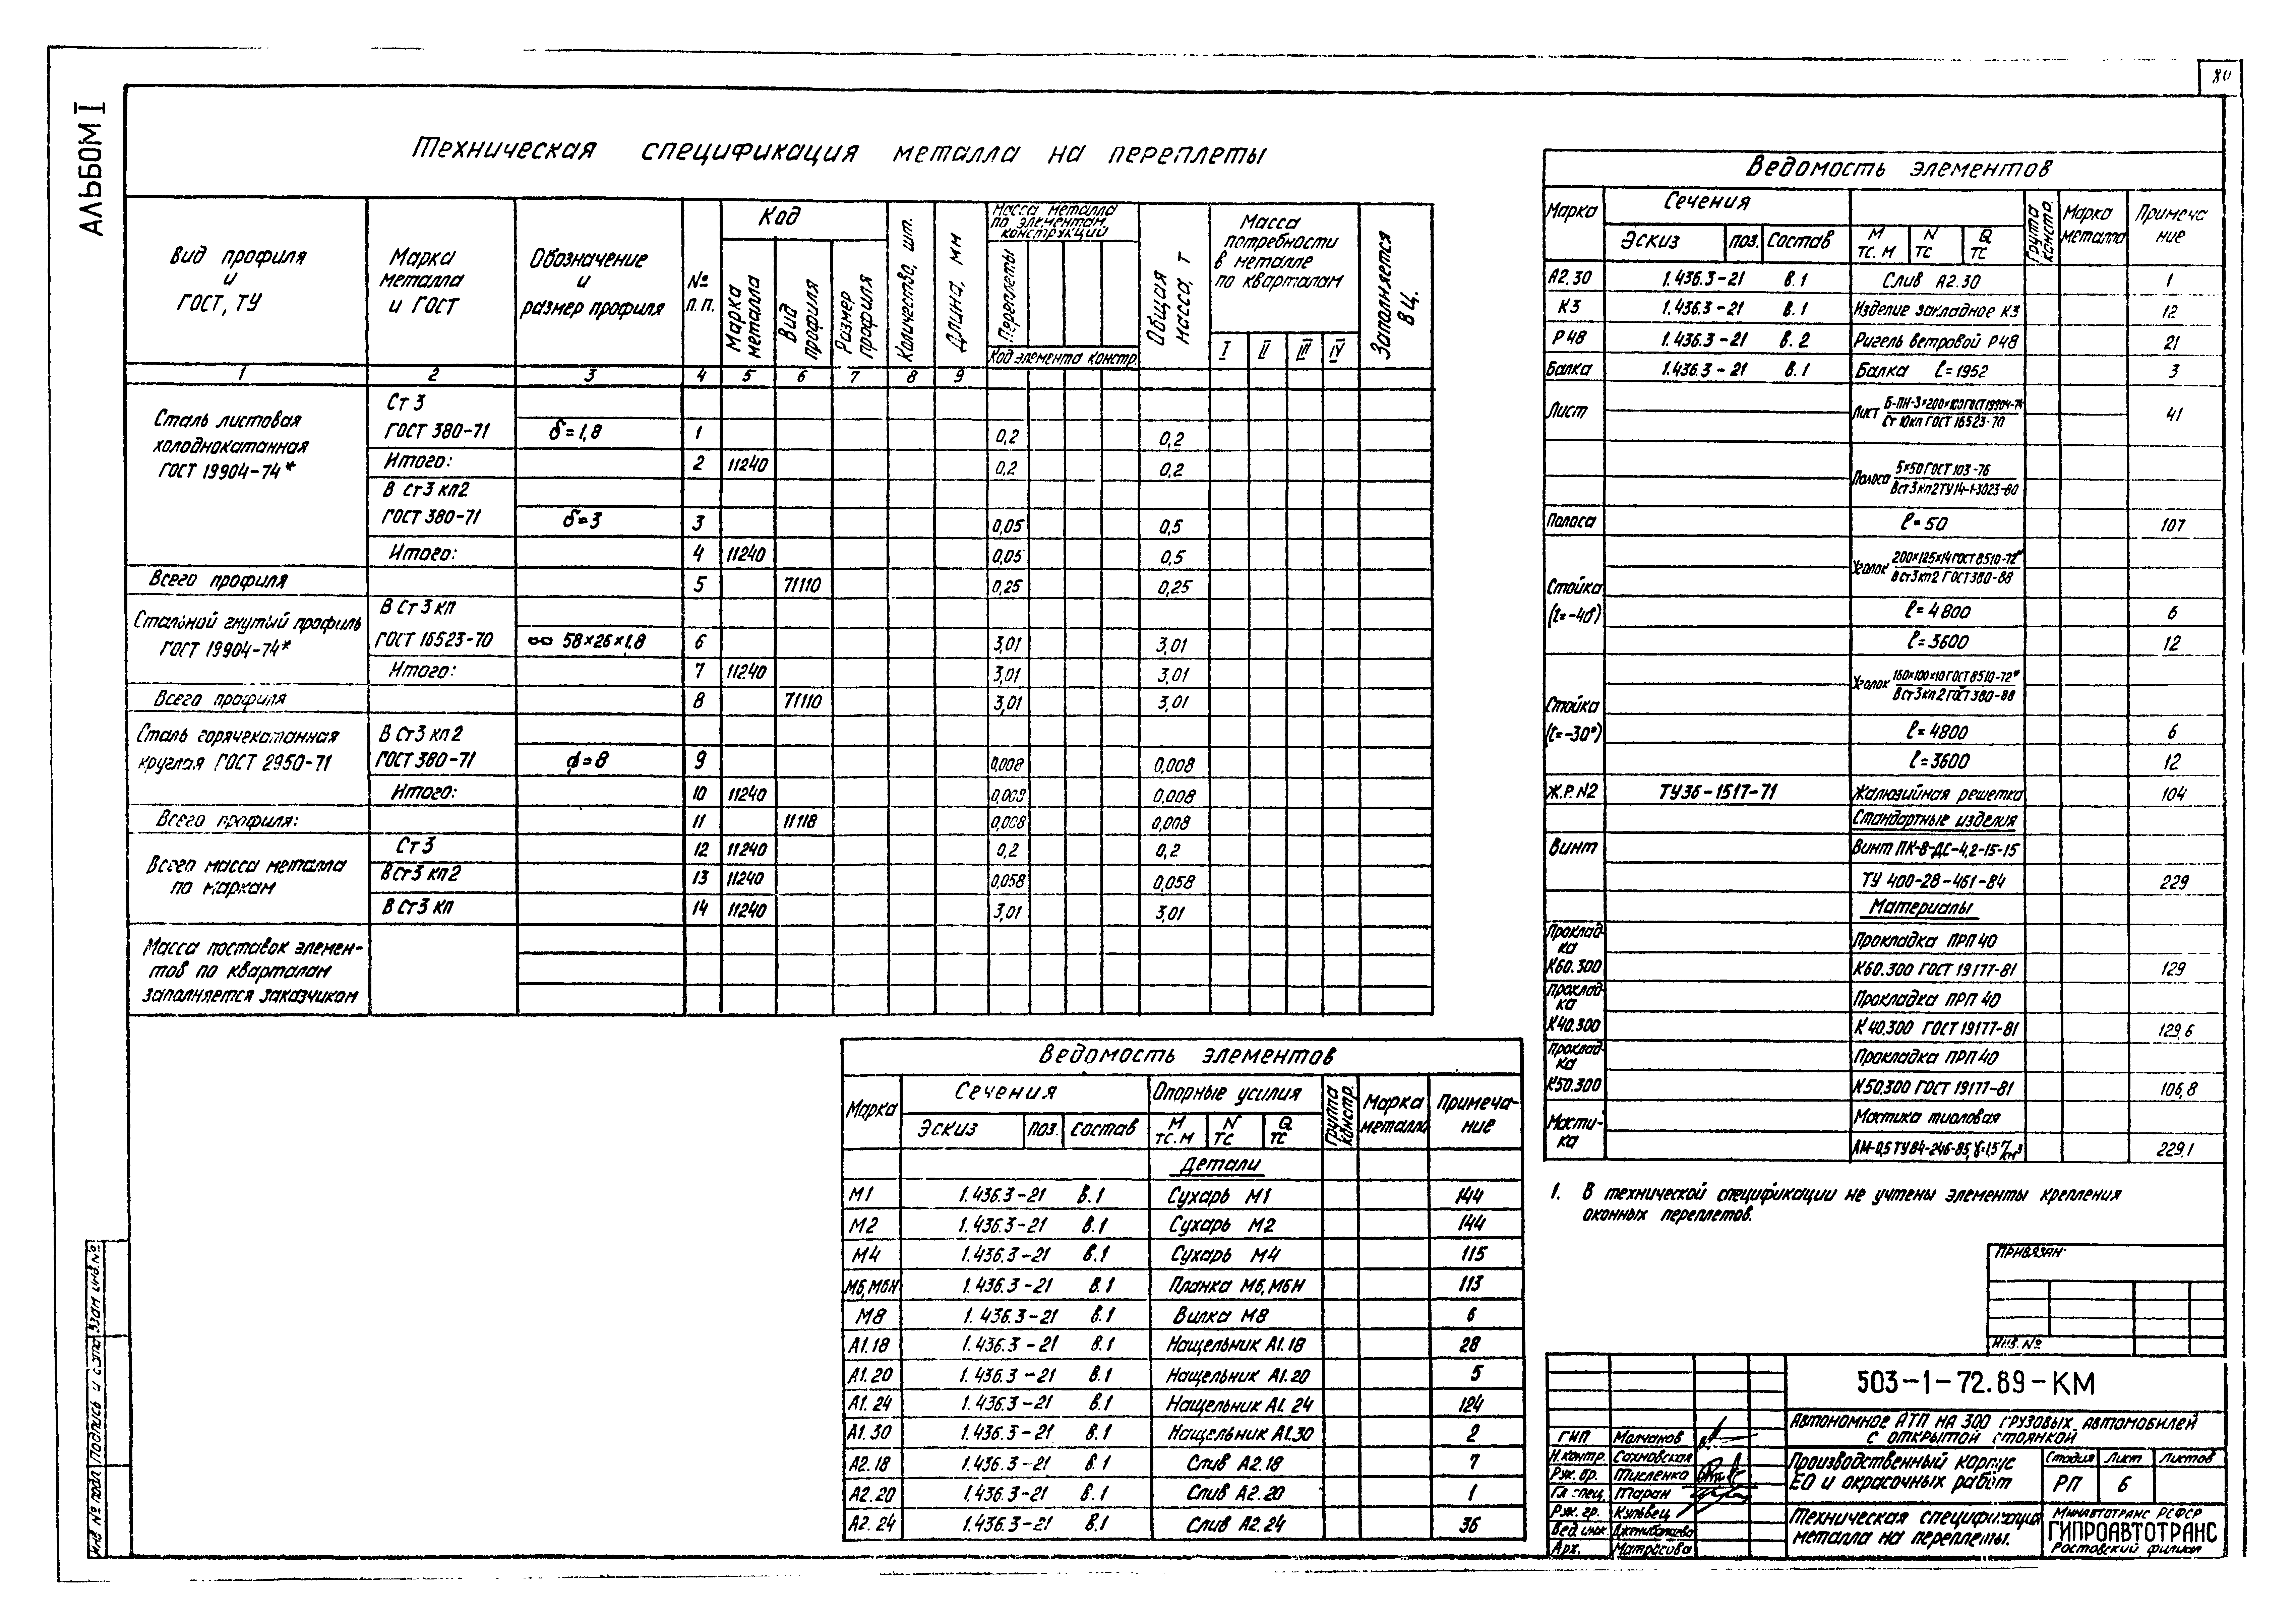 80
АЛЬБОМ I
Техническая спецификация металла на переплеты
Вид профиля и ГОСТ, ТУ | Марка металла и ГОСТ | Обозначение и размер профиля | № п.п. | Код | Количество, шт. | Длина, мм | Масса металла по элементам конструкций | Общая масса, т | Масса потребности в металле по кварталам | Заполняется ВЦ.
Марка металла | Вид профиля | Размер профиля | Переплеты | I | II | III | IV
Код элемента констр.
1 2 3 4 5 6 7 8 9
Сталь листовая холоднокатанная ГОСТ 19904-74*
Ст 3 ГОСТ 380-71 δ=1,8 1 0,2 0,2
Итого: 2 11240 0,2 0,2
В Ст3 кп2 ГОСТ 380-71 δ=3 3 0,05 0,5
Итого: 4 11240 0,05 0,5
Всего профиля 5 71110 0,25 0,25
Стальной гнутый профиль ГОСТ 19904-74*
В Ст3 кп ГОСТ 16523-70 58×26×1,8 6 3,01 3,01
Итого: 7 11240 3,01 3,01
Всего профиля 8 71110 3,01 3,01
Сталь горячекатанная круглая ГОСТ 2950-71
В Ст3 кп2 ГОСТ 380-71 ϕ=8 9 0,008 0,008
Итого: 10 11240 0,008 0,008
Всего профиля: 11 11118 0,008 0,008
Всего масса металла по маркам
Ст3 12 11240 0,2 0,2
В Ст3 кп2 13 11240 0,058 0,058
В Ст3 кп 14 11240 3,01 3,01
Масса поставок элемен-
тов по кварталам
заполняется заказчиком
Ведомость элементов
Марка | Сечения | Опорные усилия | Группа констр. | Марка металла | Примеча-ние
Эскиз | поз. | Состав | М тс.м | N тс | Q тс
Детали
М1 1.436.3-21 В.1 Сухарь М1 144
М2 1.436.3-21 В.1 Сухарь М2 144
М4 1.436.3-21 В.1 Сухарь М4 115
М6, М6Н 1.436.3-21 В.1 Планка М6, М6Н 113
М8 1.436.3-21 В.1 Вилка М8 6
А1.18 1.436.3-21 В.1 Нащельник А1.18 28
А1.20 1.436.3-21 В.1 Нащельник А1.20 5
А1.24 1.436.3-21 В.1 Нащельник А1.24 124
А1.30 1.436.3-21 В.1 Нащельник А1.30 2
А2.18 1.436.3-21 В.1 Слив А2.18 7
А2.20 1.436.3-21 В.1 Слив А2.20 1
А2.24 1.436.3-21 В.1 Слив А2.24 36
Ведомость элементов
Марка | Сечения | Группа констр. | Марка металла | Примеча ние
Эскиз | поз. | Состав | М тс.м | N тс | Q тс
А2.30 1.436.3-21 В.1 Слив А2.30 1
К3 1.436.3-21 В.1 Изделие закладное К3 12
Р48 1.436.3-21 В.2 Ригель ветровой Р48 21
Балка 1.436.3-21 В.1 Балка ℓ=1952 3
Лист Лист Б-ПН-3×200×100 ГОСТ 19904-74 / Ст 10кп ГОСТ 16523-70 41
Полоса 5×50 ГОСТ 103-76 / Вст3кп2 ТУ14-1-3023-80
Полоса ℓ=50 107
Уголок 200×125×14 ГОСТ 8510-72* / Вст3кп2 ГОСТ 380-88
Стойка (t=-40°) ℓ=4800 6
ℓ=3600 12
Уголок 160×100×10 ГОСТ 8510-72* / Вст3кп2 ГОСТ 380-88
Стойка (t=-30°) ℓ=4800 6
ℓ=3600 12
Ж.Р. N2 ТУ36-1517-71 Жалюзийная решетка 104
Стандартные изделия
Винт Винт ПК-8-ДС-4,2-15-15
ТУ 400-28-461-84 229
Материалы
Проклад-ка К60.300 Прокладка ПРП 40
К60.300 ГОСТ 19177-81 129
Проклад-ка К40.300 Прокладка ПРП 40
К40.300 ГОСТ 19177-81 129,6
Проклад-ка К50.300 Прокладка ПРП 40
К50.300 ГОСТ 19177-81 106,8
Масти-ка Мастика тиоловая
АМ-0,5 ТУ84-246-85, 229,1
1. В технической спецификации не учтены элементы крепления
оконных переплетов.
ПРИВЯЗАН:
ИНВ. №
503-1-72.89-КМ
Автономное АТП на 300 грузовых автомобилей
с открытой стоянкой
ГИП Молчанов
Н.контр. Сахновская
Рук. бр. Тисленко
Гл. спец. Таран
Рук. гр. Кульвец
Вед. инж.
Арх. Матросова
Производственный корпус
ЕО и окрасочных работ
Стадия Лист Листов
РП 6
Техническая спецификация
металла на переплеты.
Минавтотранс РСФСР
ГИПРОАВТОТРАНС
Ростовский филиал
Инв № подл. Подпись и дата Взам инв. №